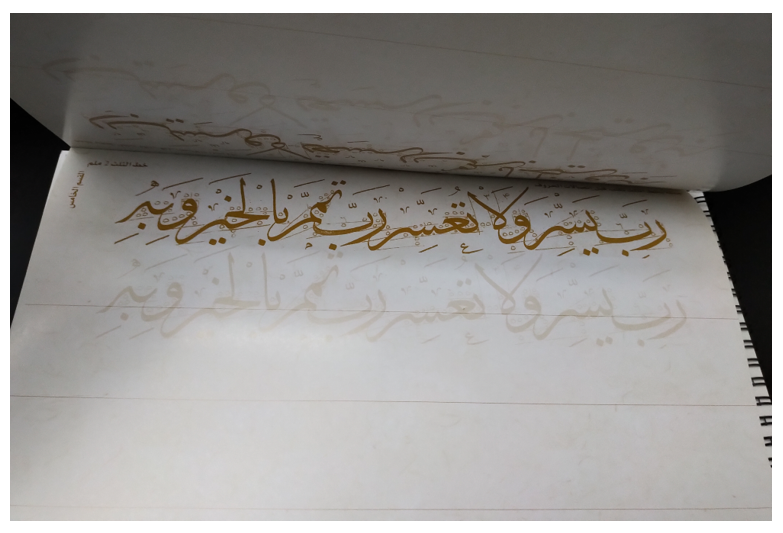 خط الثلث
رب يسر ولا تعسر رب تمم بالخير وبه
رب يسر ولا تعسر رب تمم بالخير وبه